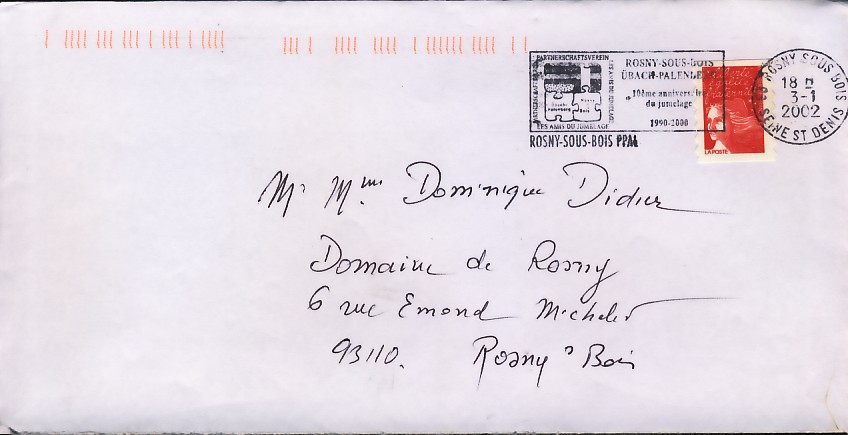 PARTNERSCHAFTSVEREIN
LES AMIS DU JUMELAGE
LES AMIS DU JUMELAGE
ROSNY-SOUS-BOIS
ÜBACH-PALENBERG
10ème anniversaire
du jumelage
1990-2000
ROSNY-SOUS-BOIS PPAL
LA POSTE
93 ROSNY SOUS BOIS
18 H
3-1
2002
SEINE ST DENIS
Mr Mme Dominique Didier
Domaine de Rosny
6 rue Emond Michelet
93110. Rosny s Bois